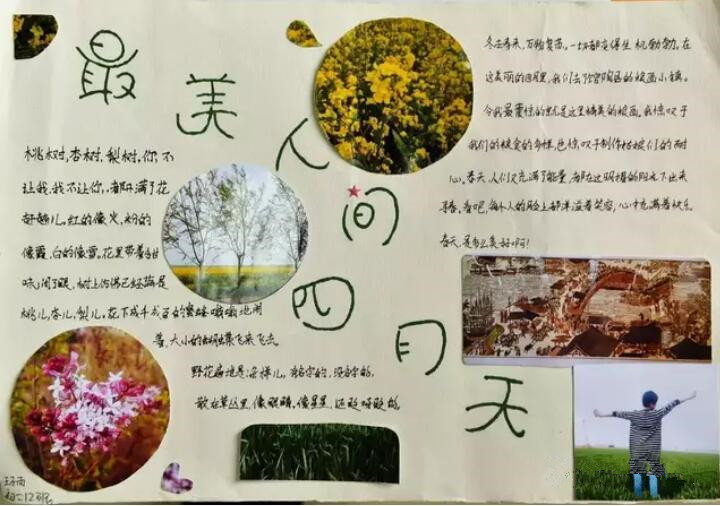 最美人间四月天
桃树,杏树,梨树,你不
让我,我不让你,都开满了花
赶趟儿。红的像火,粉的
像霞,白的像雪。花里带着甜
味;闭了眼,树上仿佛已经满是
桃儿,杏儿,梨儿。花下成千成百的蜜蜂嗡嗡地闹
着,大小的蝴蝶飞来飞去。
野花遍地是:杂样儿,有名字的,没名字的,
散在草丛里,像眼睛,像星星,还眨呀眨的。
冬去春来,万物复苏。一切都变得生机勃勃。在
这美丽的四月里,我们去了的板画小镇。
令我最震惊的就是这里精美的板画。我惊叹于
我们的的多样,也惊叹于制作板画们的耐
心。春天,人们又充满了能量,都在这明媚的阳光下出来
寻春。看吧,每个人的脸上都洋溢着笑容,心中充满着快乐
春天,是多么美好啊!
初二12班